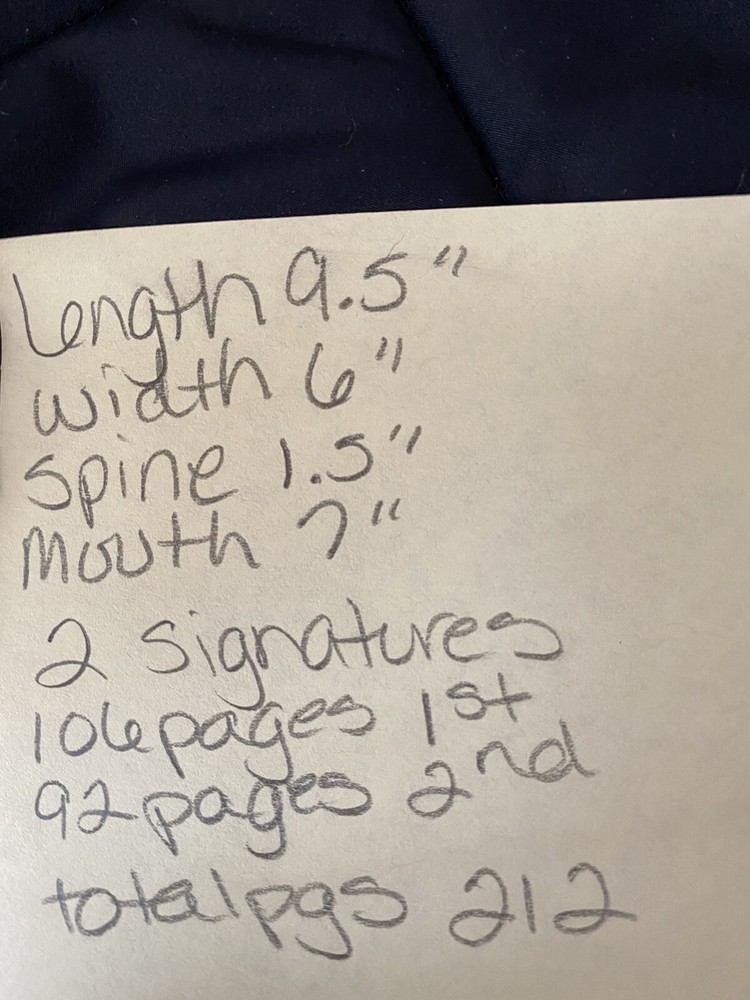 length 9.5"
width 6"
spine 1.5"
Mouth 7"
2 signatures
106pages 1st
92pages 2nd
totalpgs 212